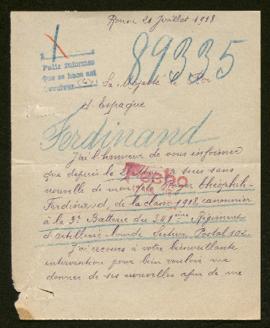 21 Juillet 1918
89335
Sa Majesté le Roi
d'Espagne
Ferdinand
J'ai l'honneur de vous informer
que depuis le je suis sans
nouvelle de mon Théophile
Ferdinand, de la classe 1918 canonnier
à la 3e Batterie du Régiment
d'artillerie lourde Secteur Postal 102
J'ai recours à votre bienveillante
intervention pour bien vouloir me
donner de ses nouvelles afin de me